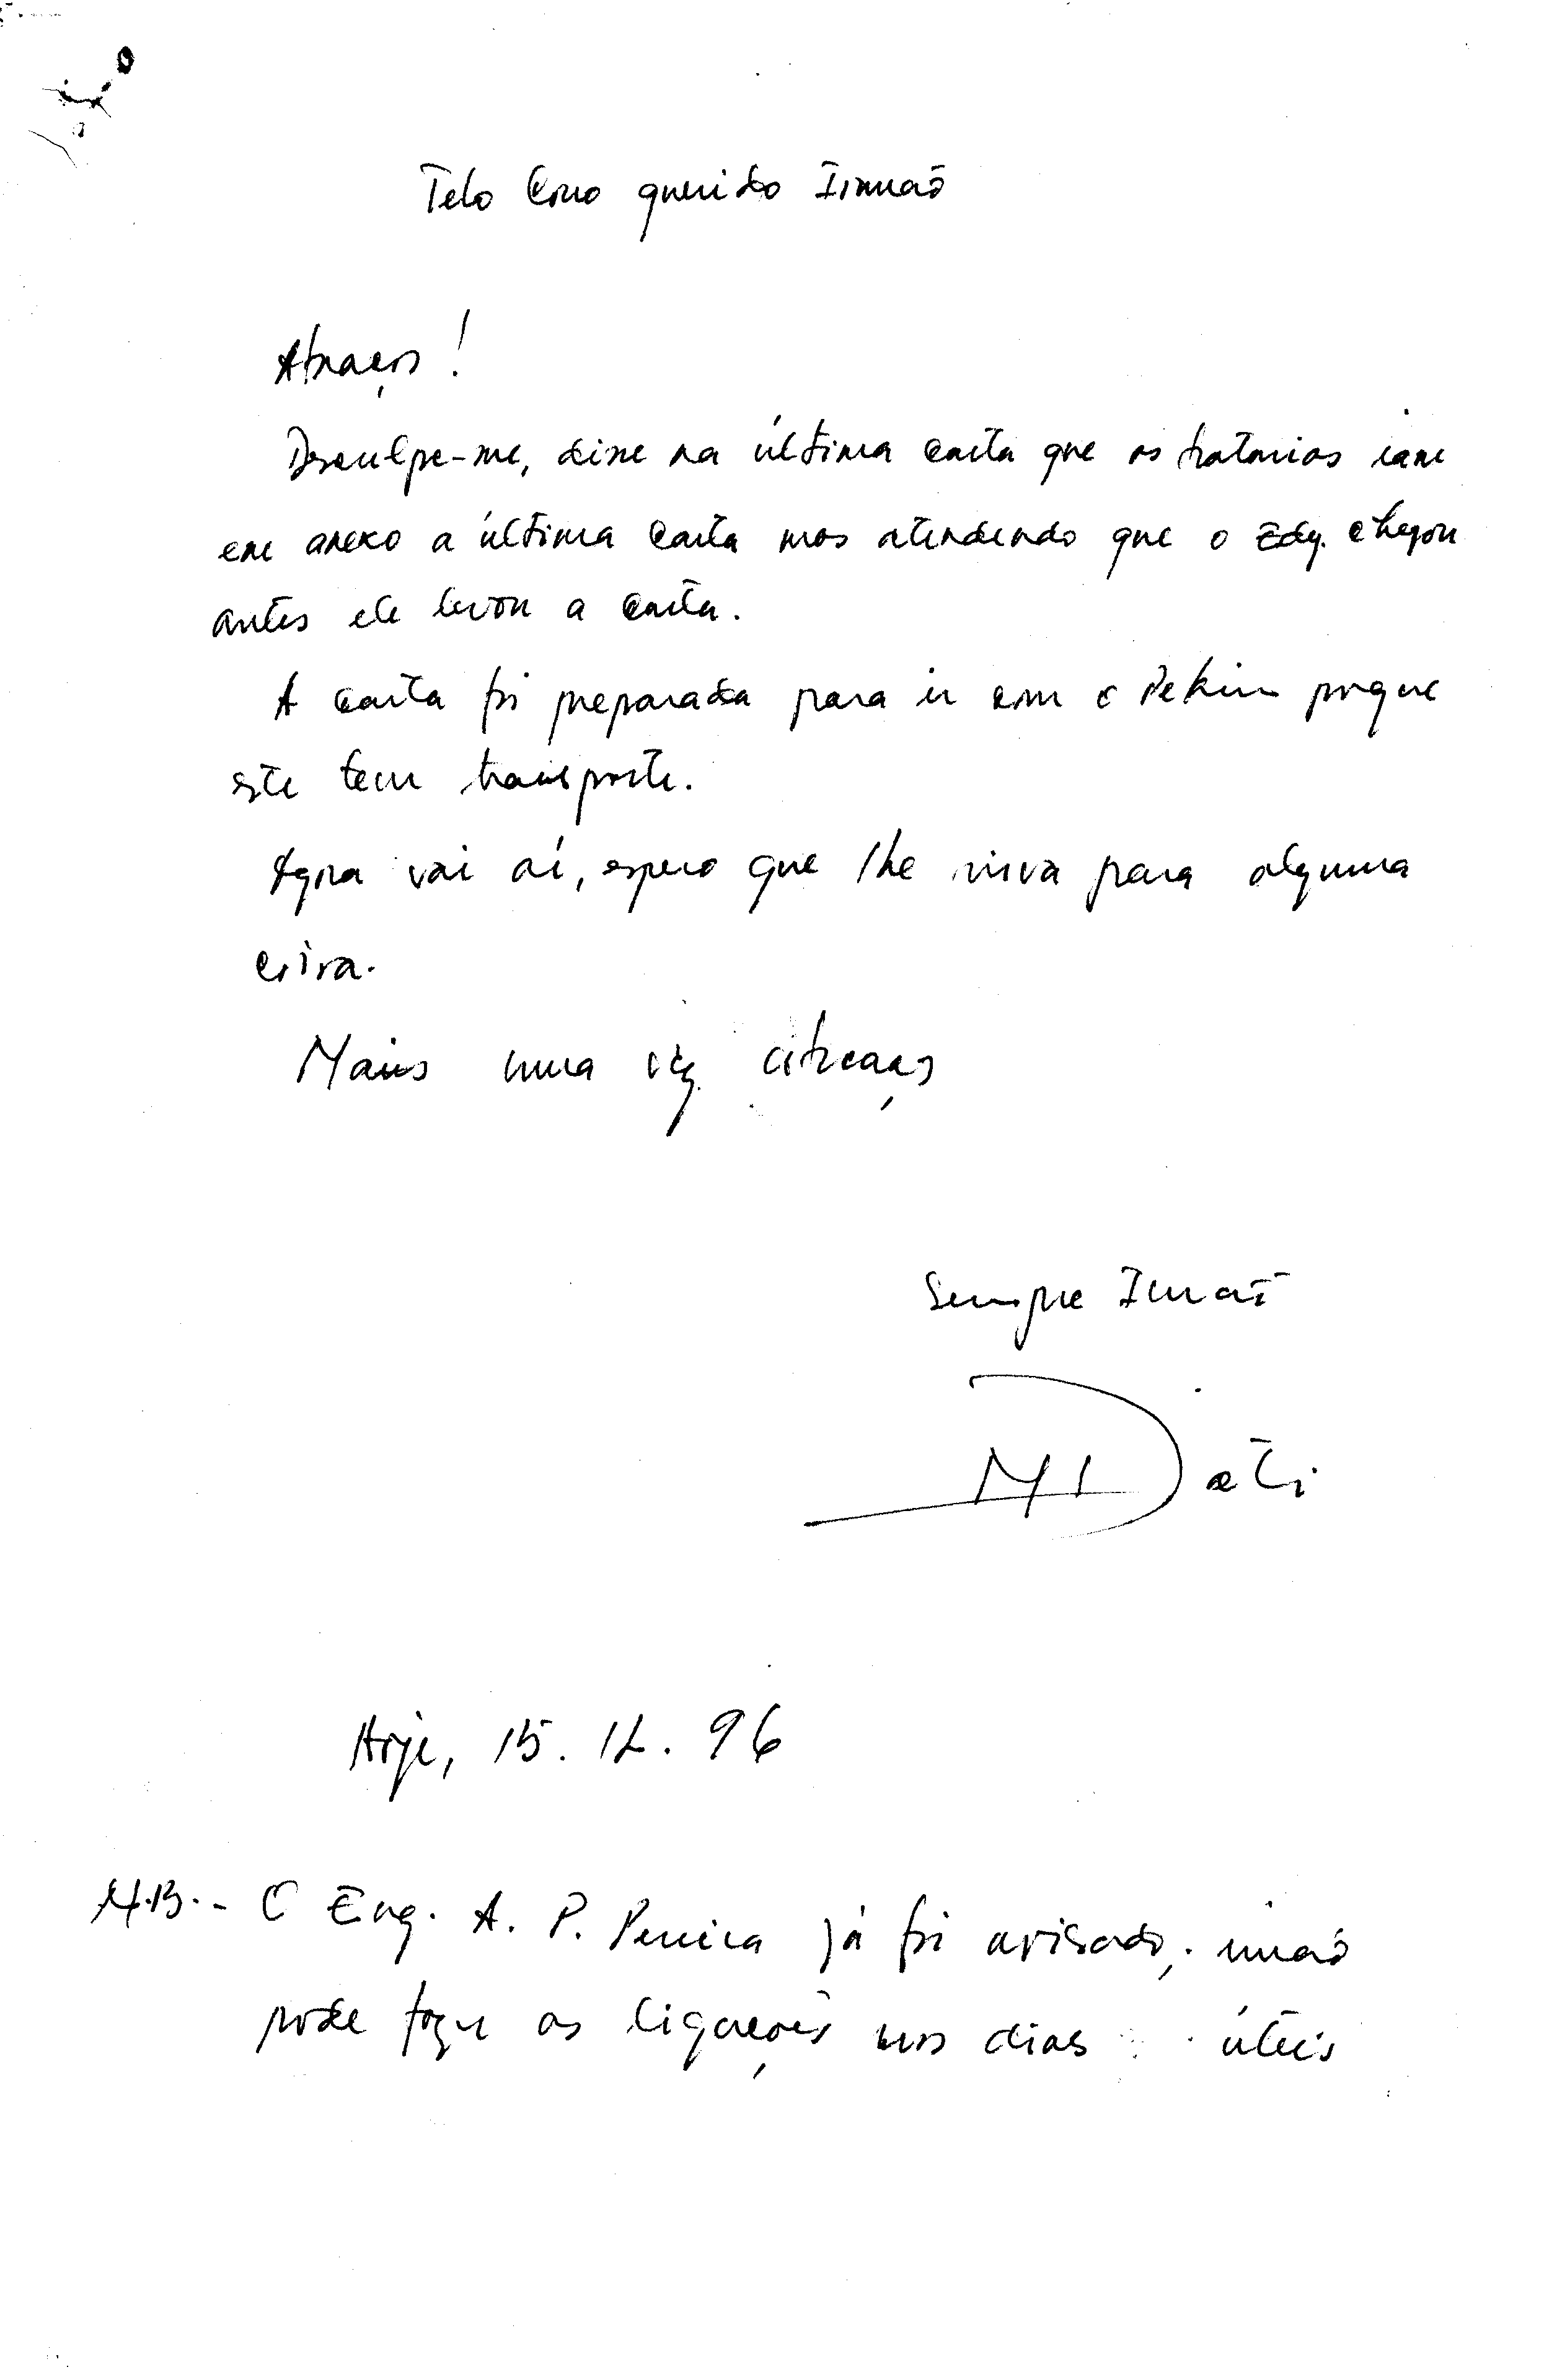 Telo como querido Irmão
Abraços!
Desculpe-me, disse na última carta que os iam
em anexo a última carta mas atendendo que o Edy. chegou
antes ele levou a carta.
A carta foi preparada para ir com o Pekim porque
este tem transporte.
Agora vai aí, espero que lhe sirva para alguma
coisa.
Mais uma vez abraços
Sempre Irmão
Dati
Hoje, 15.12.96
N.B.- O Eng. A. P. Pereira já foi avisado, irmão
pode fazer as ligações nos dias úteis